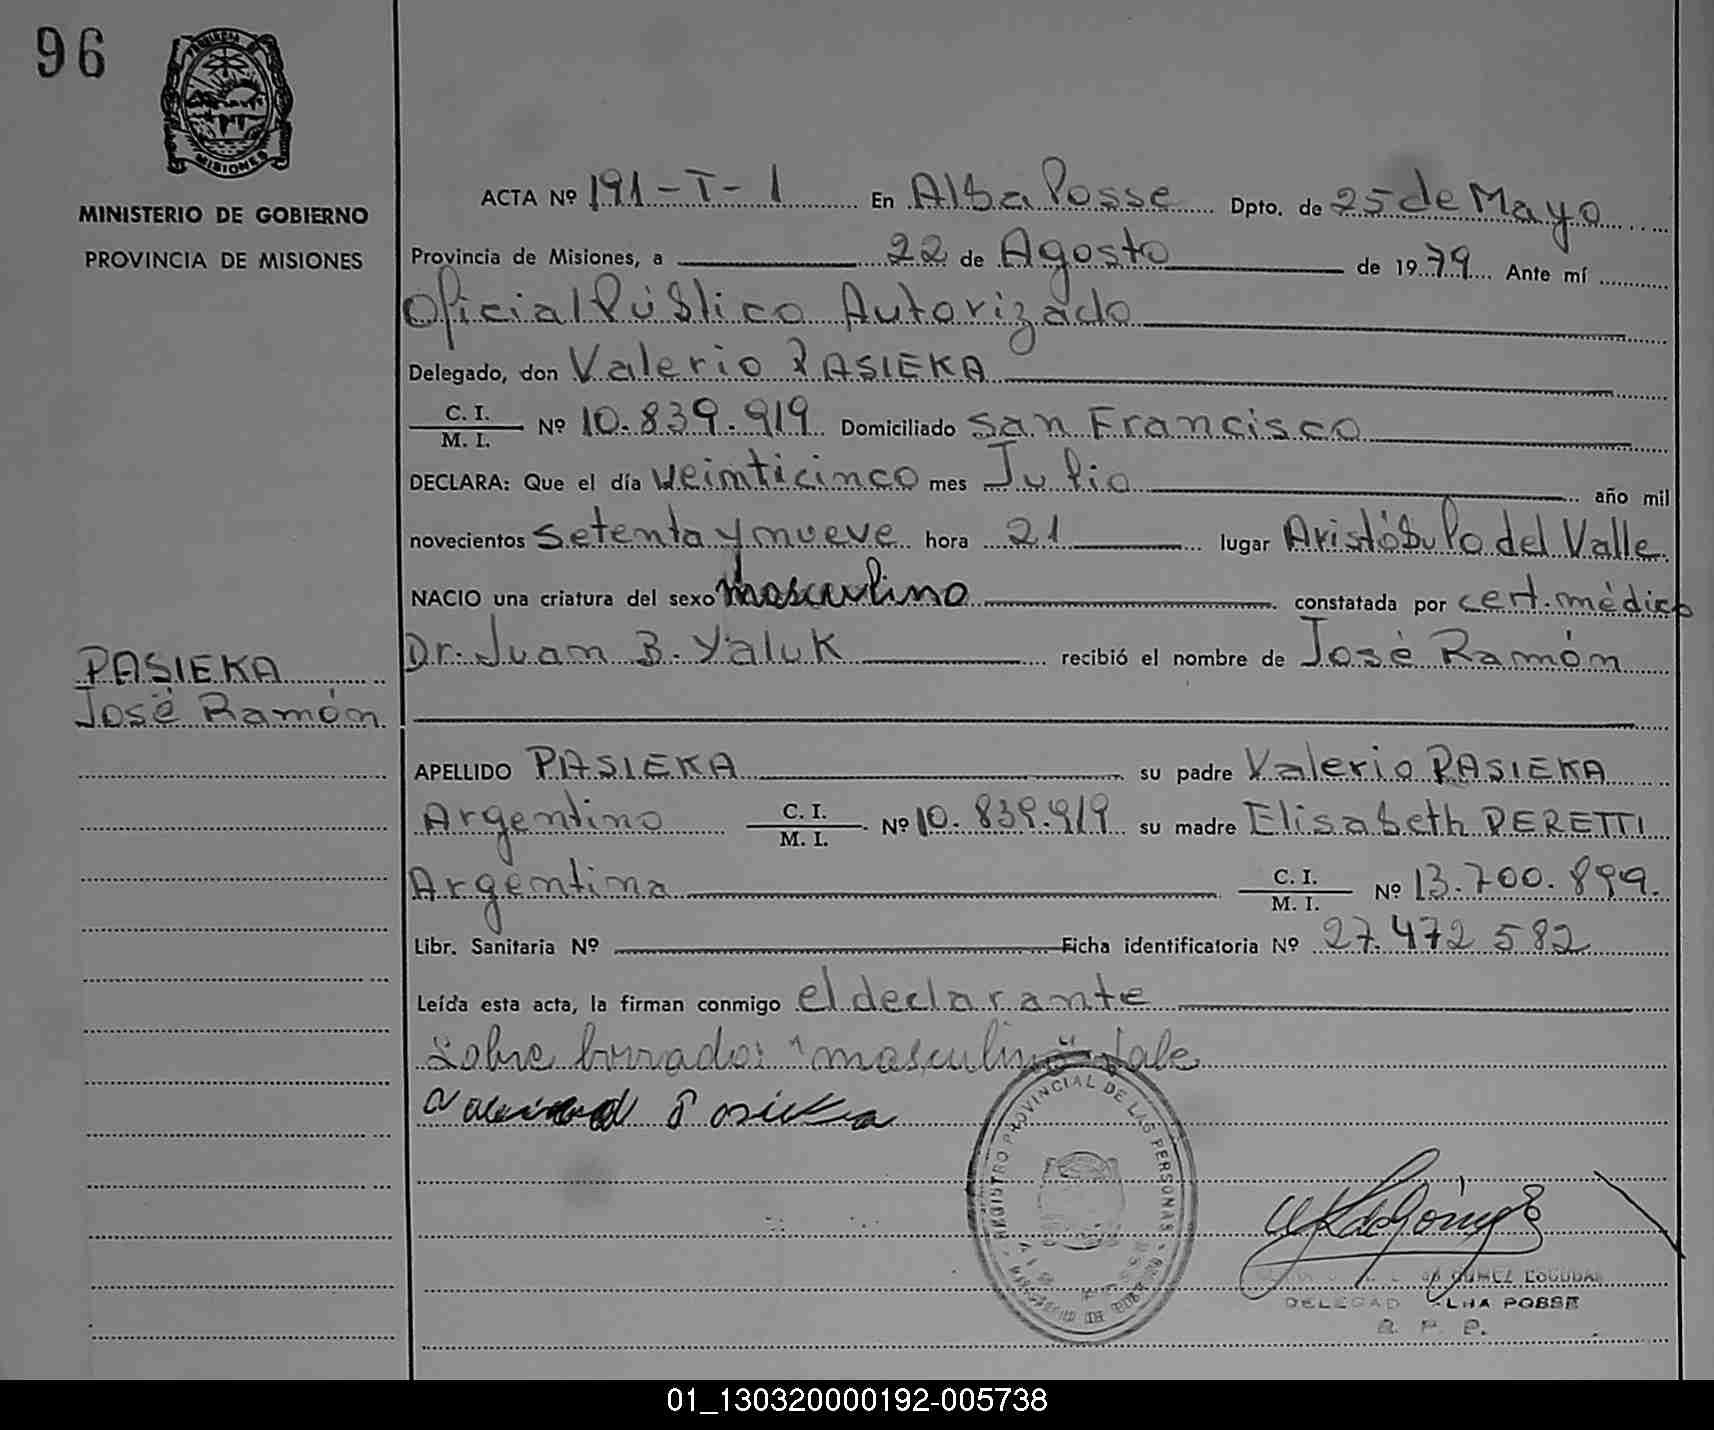 96
PROVINCIA DE
MISIONES
MINISTERIO DE GOBIERNO
PROVINCIA DE MISIONES
PASIEKA
José Ramón
ACTA Nº 191-T-1 En Alba Posse Dpto. de 25 de Mayo
Provincia de Misiones, a 22 de Agosto de 1979 Ante mí
Oficial Público Autorizado
Delegado, don Valerio PASIEKA
C. I.
M. I. Nº 10.839.919 Domiciliado San Francisco
DECLARA: Que el día veinticinco mes Julio año mil
novecientos setenta y nueve hora 21 lugar Aristóbulo del Valle
NACIO una criatura del sexo masculino constatada por cert. médico
Dr. Juan B. Yaluk recibió el nombre de José Ramón
APELLIDO PASIEKA su padre Valerio PASIEKA
Argentino C. I.
M. I. Nº 10.839.919 su madre Elisabeth PERETTI
Argentina C. I.
M. I. Nº 13.700.899.
Libr. Sanitaria Nº Ficha identificatoria Nº 27.472 582
Leída esta acta, la firman conmigo el declarante
Sobre borrado: "masculino" Vale
Pasieka
REGISTRO PROVINCIAL DE LAS PERSONAS
GOMEZ ESCOBAR
DELEGAD ALBA POSSE
R. P. P.
01_130320000192-005738